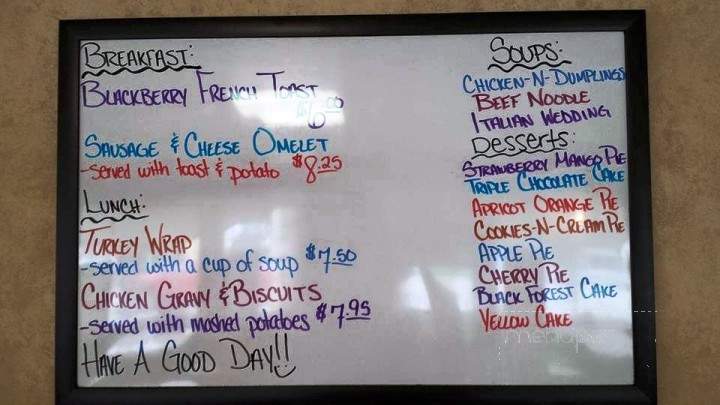 BREAKFAST:
BLACKBERRY FRENCH TOAST
$6.00
SAUSAGE & CHEESE OMELET
-served with toast & potato $8.25
LUNCH:
TURKEY WRAP
-served with a cup of soup $7.50
CHICKEN GRAVY & BISCUITS
-served with mashed potatoes $7.95
HAVE A GOOD DAY!!
SOUPS:
CHICKEN-N-DUMPLINGS
BEEF NOODLE
ITALIAN WEDDING
DESSERTS:
STRAWBERRY MANGO PIE
TRIPLE CHOCOLATE CAKE
APRICOT ORANGE PIE
COOKIES-N-CREAM PIE
APPLE PIE
CHERRY PIE
BLACK FOREST CAKE
YELLOW CAKE